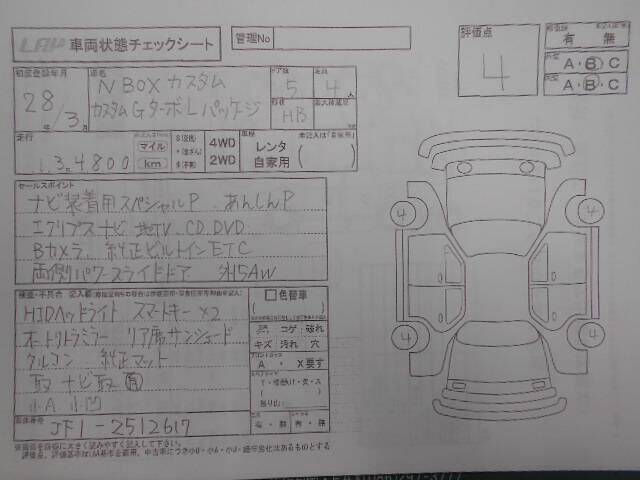 LAP 車両状態チェックシート
管理No
評価点
4
有 無
A・B・C
A・B・C
初度登録年月
28年/3月
車名
N BOX カスタム
カスタムGターボLパッケージ
ドア数
5
定員
4人
形状
HB
走行
1,3 4,800
マイル
km
4WD
2WD
車歴
レンタ
自家用
セールスポイント
ナビ装着用スペシャルP あんしんP
エアリプスナビ 地TV CD.DVD
Bカメラ、純正ビルトインETC
両側パワースライドドア 外15AW
検査・不具合 記入欄
HIDヘッドライト スマートキー×2
オートリトラミラー リア席サンシェード
クルコン 純正マット
取 ナビ取 有
小A 小凹
色替車
コゲ 破れ
キズ 汚れ 穴
フロントガラス
A・ X要す
有・無 有・無
車体番号
JF1-2512617
4
4
4
4